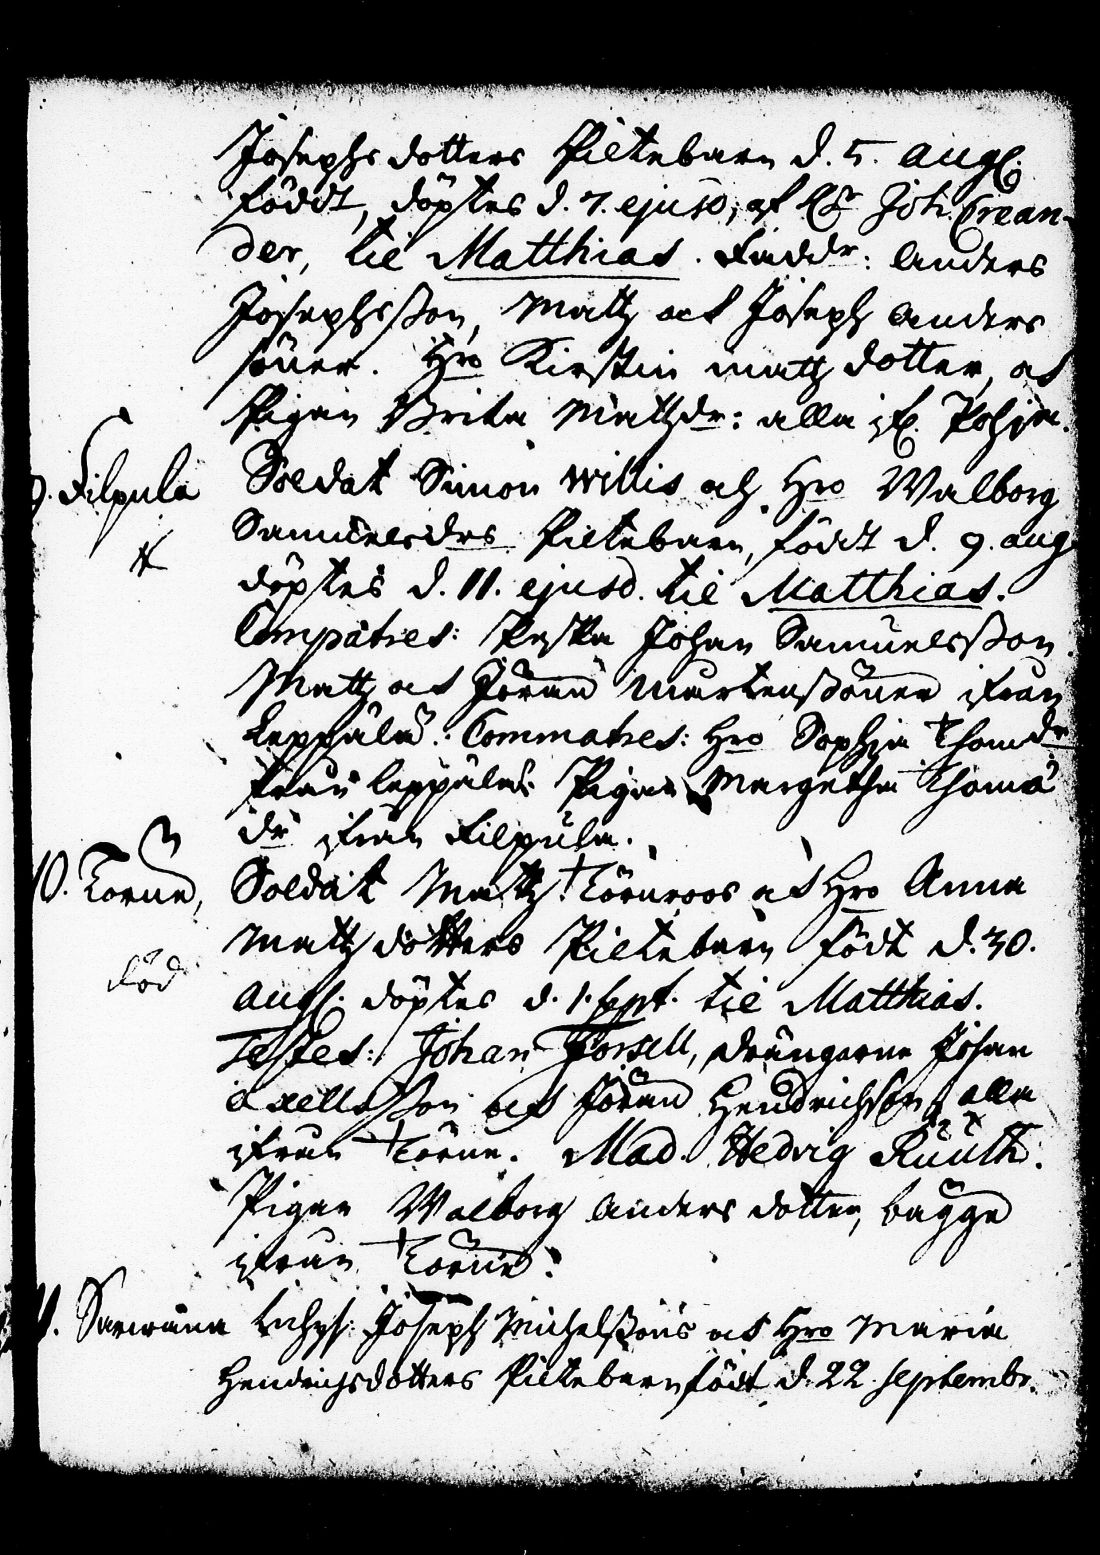 Josephs dotters Piltebarn d. 5. Aug.
födt, döptes d. 7. ejusd, af Joh. Crean-
der, til Matthias. Faddr: Anders
Josephsßon, Matz och Joseph Anders
söner. Hro Kirstin Matz dotter, och
Pigan Brita Matzdr: alla if. Pohja.
9. Filpula Soldat Simon Willis och Hro Walborg
Samuelsdrs Piltebarn, födt d. 9. aug
döptes d. 11. ejusd. til Matthias.
Compatres: Johan Samuelsßon.
Matz och Jöran Mårtenßöner ifrån
Leppälä. Commatres: Hro Sophia Thomdr
från Leppälä. Pigan Margetha Thomæ
dr ifrån Filpula.
10. Törne, Soldat Matz Törnroos och Hro Anna
Matz dotters Piltebarn födt d. 30.
död
Aug. döptes d. 1. Sept. til Matthias.
Testes: Johan Forsell, drängarne Johan
Axellsßon och Jöran Hendrichson, alla
ifrån Törne. Mad. Hedvig Ruuth.
Pigan Walborg Anders dotter, bägge
ifrån Törne.
11. Joseph Michelßons och Hro Maria
Hendrichsdotters Piltebarn födt d. 22. septembr.